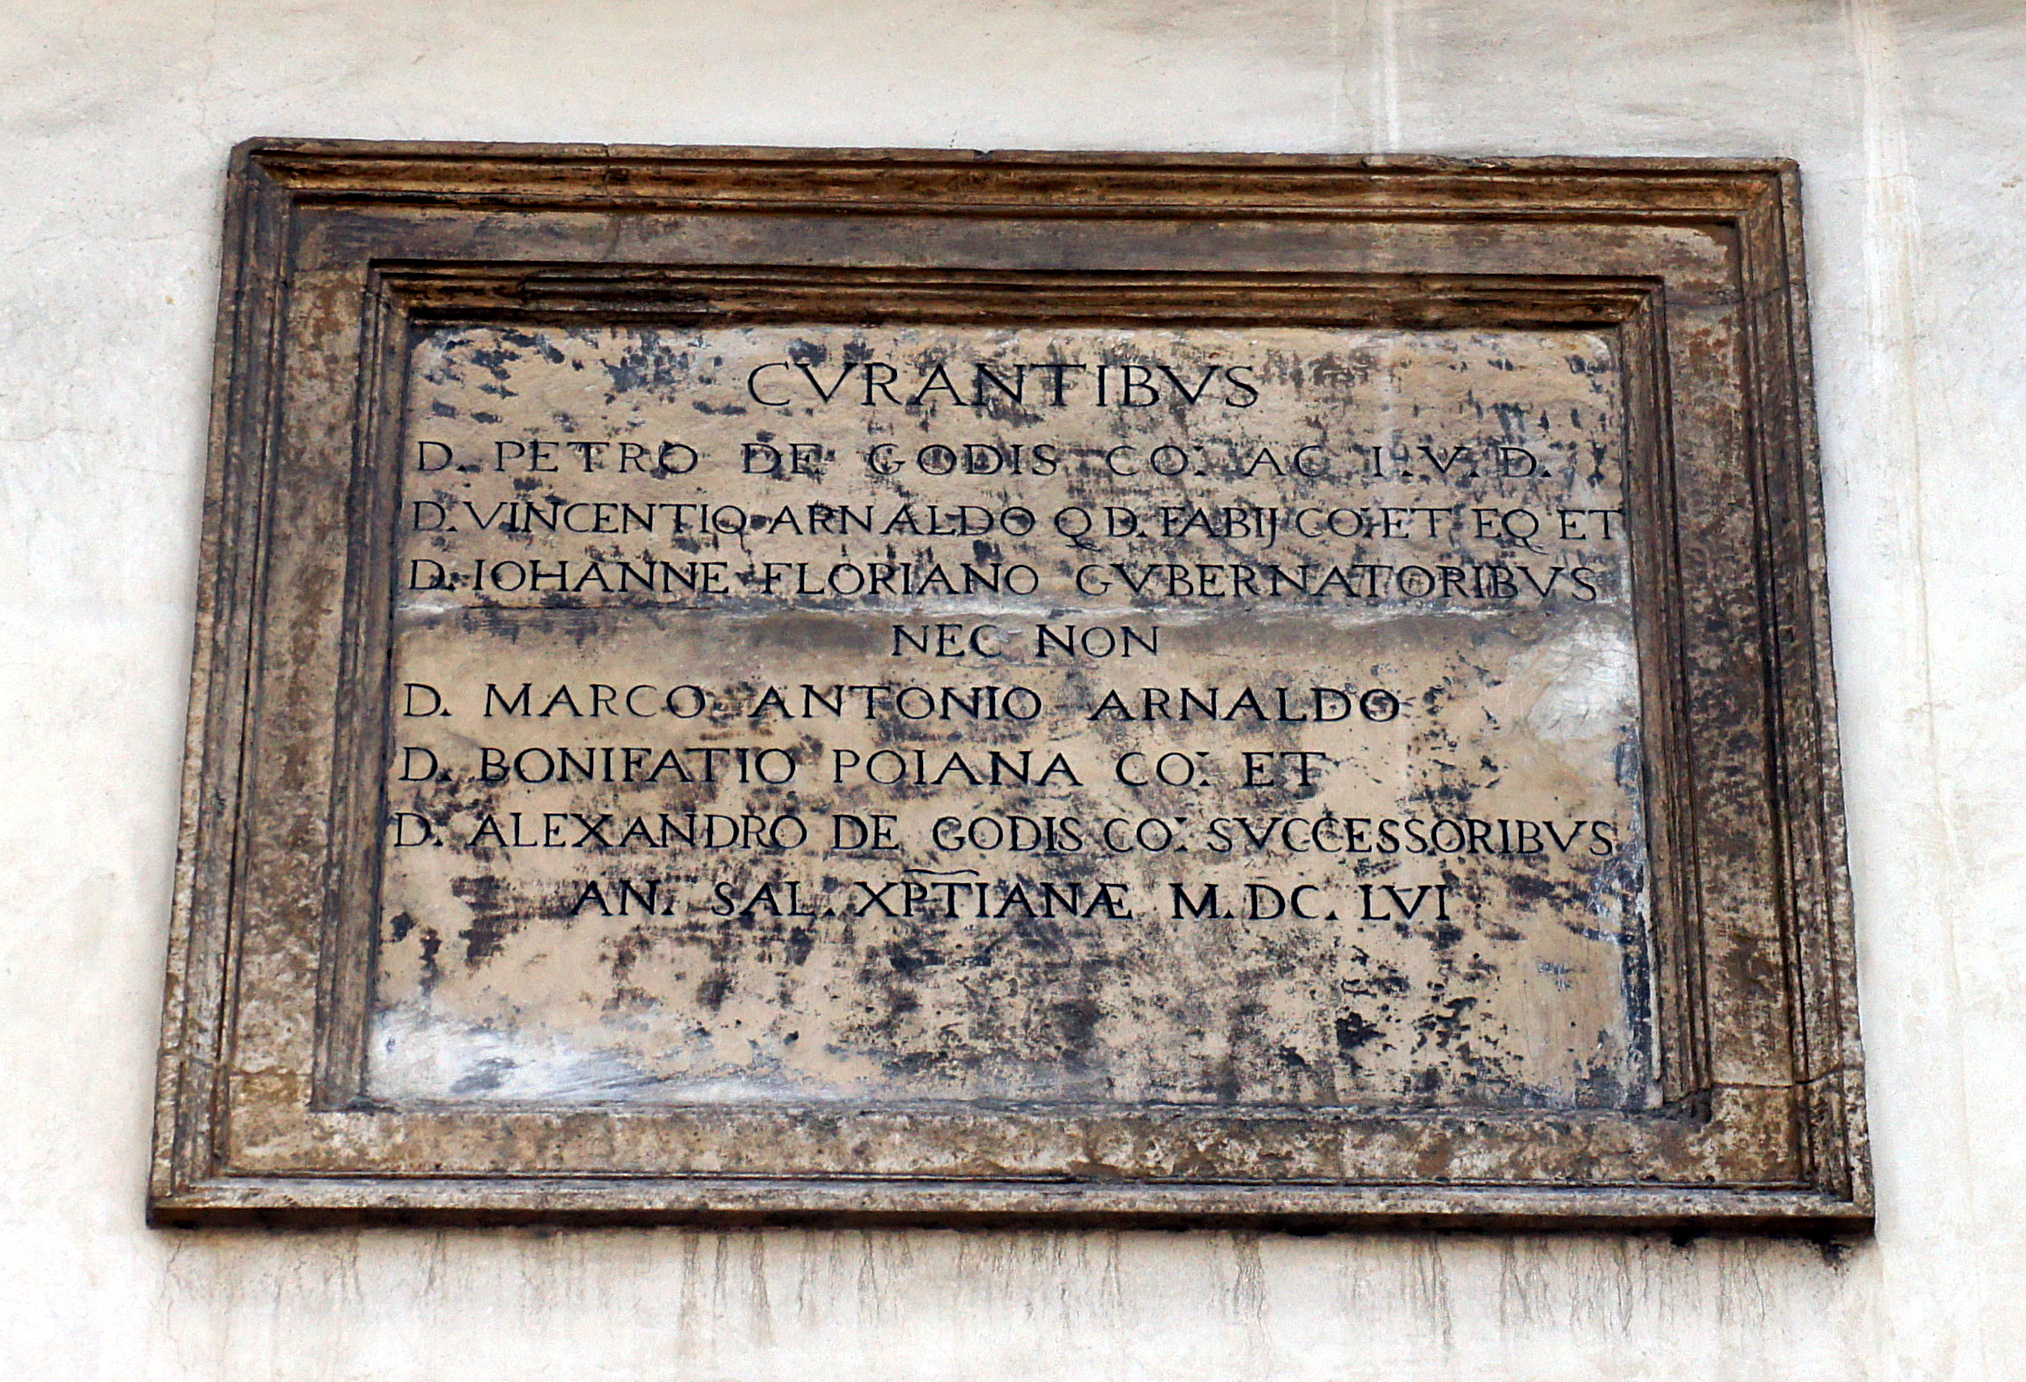 CVRANTIBVS
D. PETRO DE GODIS CO: AC I.V.D.
D. VINCENTIO ARNALDO Q D. FABIJ CO: ET EQ ET
D. IOHANNE FLORIANO GVBERNATORIBVS
NEC NON
D. MARCO ANTONIO ARNALDO
D. BONIFATIO POIANA CO: ET
D. ALEXANDRO DE GODIS CO: SVCCESSORIBVS
AN. SAL. XPTIANÆ M.DC. LVI